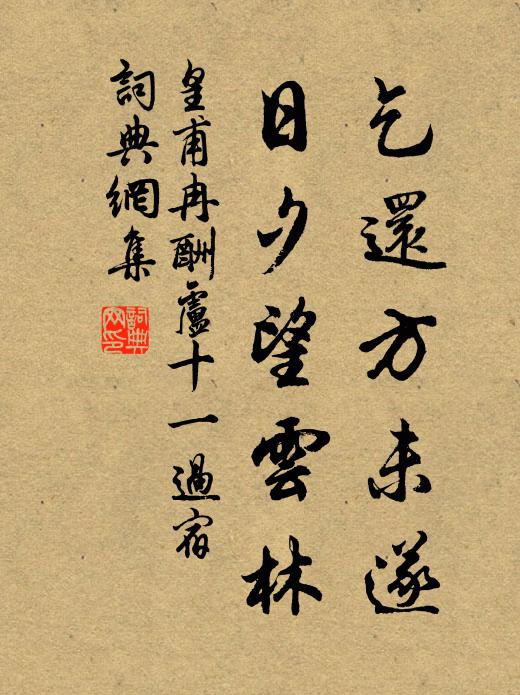 乞還方未遂
日夕望雲林
皇甫冉酬盧十一過宿
詞典網集
詞典网印